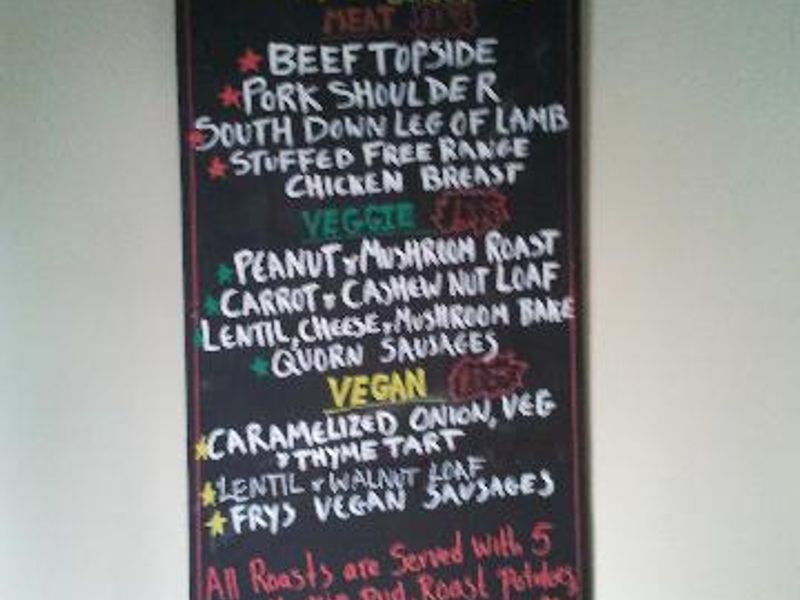 MEAT
BEEF TOPSIDE
PORK SHOULDER
SOUTH DOWN LEG OF LAMB
STUFFED FREE RANGE
CHICKEN BREAST
VEGGIE
PEANUT & MUSHROOM ROAST
CARROT & CASHEW NUT LOAF
LENTIL, CHEESE, & MUSHROOM BAKE
QUORN SAUSAGES
VEGAN
CARAMELIZED ONION, VEG
& THYME TART
LENTIL & WALNUT LOAF
FRYS VEGAN SAUSAGES
All Roasts are Served with 5
Roast Potatoes,